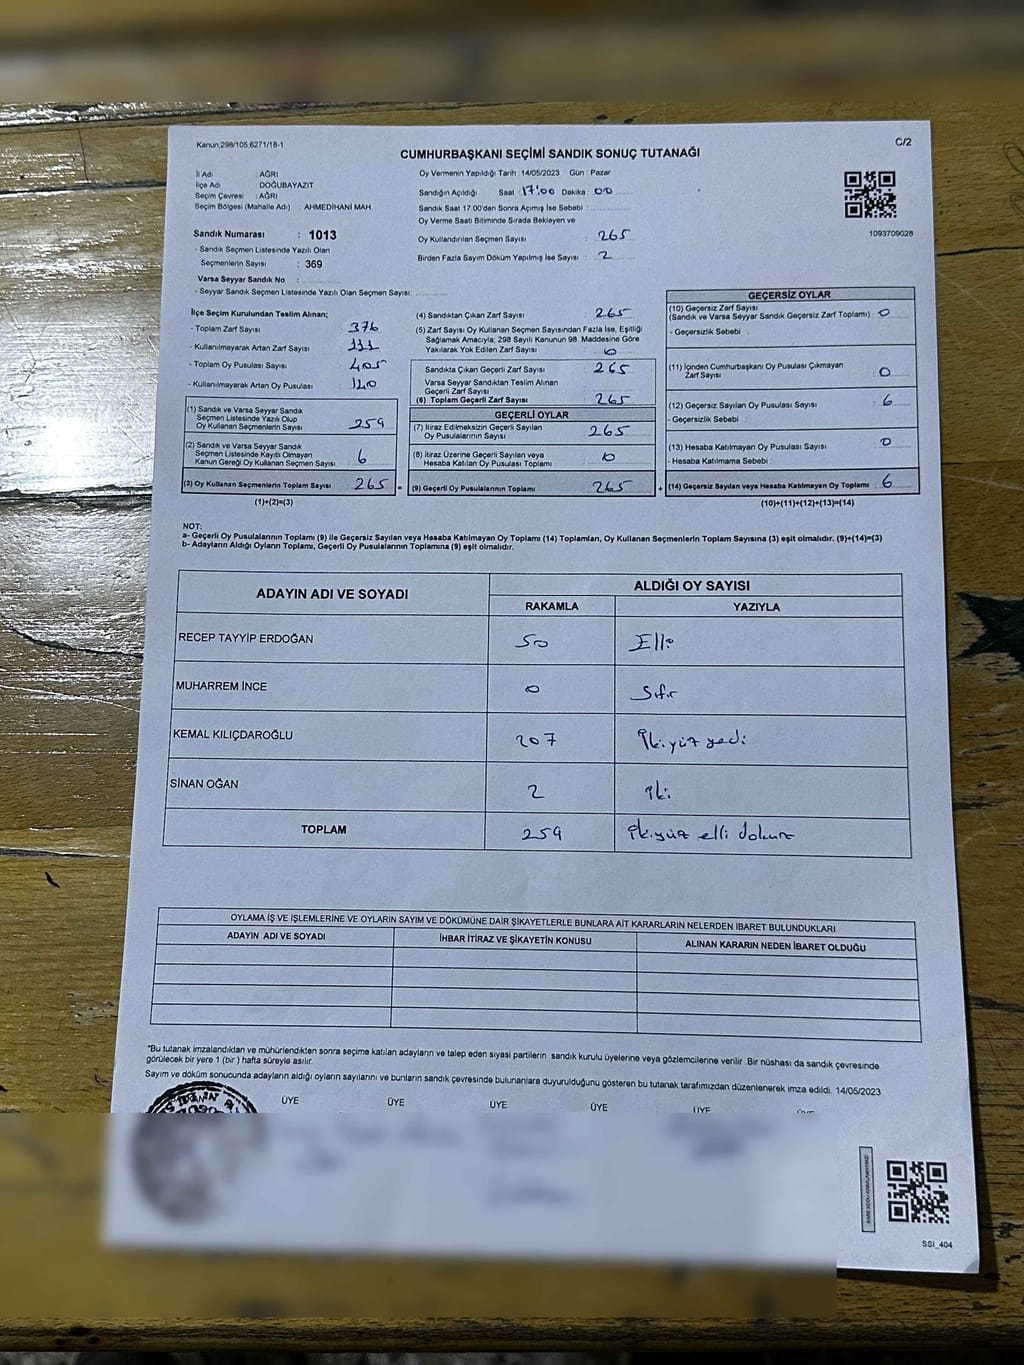 Kanun:298/105;6271/18-1
C/2
CUMHURBAŞKANI SEÇİMİ SANDIK SONUÇ TUTANAĞI
İl Adı : AĞRI
İlçe Adı : DOĞUBAYAZIT
Seçim Çevresi : AĞRI
Seçim Bölgesi (Mahalle Adı) : AHMEDİHANİ MAH.
Sandık Numarası : 1013
- Sandık Seçmen Listesinde Yazılı Olan
Seçmenlerin Sayısı : 369
Varsa Seyyar Sandık No :
- Seyyar Sandık Seçmen Listesinde Yazılı Olan Seçmen Sayısı:
Oy Vermenin Yapıldığı Tarih : 14/05/2023 Gün : Pazar
Sandığın Açıldığı Saat : 17:00 Dakika : 00
Sandık Saat 17.00'den Sonra Açımış İse Sebebi :
Oy Verme Saati Bitiminde Sırada Bekleyen ve
Oy Kullandırılan Seçmen Sayısı : 265
Birden Fazla Sayım Döküm Yapılmış İse Sayısı : 2
1093709028
İlçe Seçim Kurulundan Teslim Alınan;
- Toplam Zarf Sayısı : 376
- Kullanılmayarak Artan Zarf Sayısı : 111
- Toplam Oy Pusulası Sayısı : 405
- Kullanılmayarak Artan Oy Pusulası : 140
(1) Sandık ve Varsa Seyyar Sandık
Seçmen Listesinde Yazılı Olup
Oy Kullanan Seçmenlerin Sayısı : 259
(2) Sandık ve Varsa Seyyar Sandık
Seçmen Listesinde Kayıtlı Olmayan
Kanun Gereği Oy Kullanan Seçmen Sayısı : 6
(3) Oy Kullanan Seçmenlerin Toplam Sayısı : 265 =
(1)+(2)=(3)
(4) Sandıktan Çıkan Zarf Sayısı : 265
(5) Zarf Sayısı Oy Kullanan Seçmen Sayısından Fazla İse, Eşitliği
Sağlamak Amacıyla, 298 Sayılı Kanunun 98. Maddesine Göre
Yakılarak Yok Edilen Zarf Sayısı : 0
Sandıkta Çıkan Geçerli Zarf Sayısı : 265
Varsa Seyyar Sandıktan Teslim Alınan
Geçerli Zarf Sayısı :
(6) Toplam Geçerli Zarf Sayısı : 265
GEÇERLİ OYLAR
(7) İtiraz Edilmeksizin Geçerli Sayılan
Oy Pusulalarının Sayısı : 265
(8) İtiraz Üzerine Geçerli Sayılan veya
Hesaba Katılan Oy Pusulası Toplamı : 0
(9) Geçerli Oy Pusulalarının Toplamı : 265 +
GEÇERSİZ OYLAR
(10) Geçersiz Zarf Sayısı
(Sandık ve Varsa Seyyar Sandık Geçersiz Zarf Toplamı) : 0
- Geçersizlik Sebebi :
(11) İçinden Cumhurbaşkanı Oy Pusulası Çıkmayan
Zarf Sayısı : 0
(12) Geçersiz Sayılan Oy Pusulası Sayısı : 6
- Geçersizlik Sebebi :
(13) Hesaba Katılmayan Oy Pusulası Sayısı : 0
- Hesaba Katılmama Sebebi :
(14) Geçersiz Sayılan veya Hesaba Katılmayan Oy Toplamı : 6
(10)+(11)+(12)+(13)=(14)
NOT:
a- Geçerli Oy Pusulalarının Toplamı (9) ile Geçersiz Sayılan veya Hesaba Katılmayan Oy Toplamı (14) Toplamları, Oy Kullanan Seçmenlerin Toplam Sayısına (3) eşit olmalıdır. (9)+(14)=(3)
b- Adayların Aldığı Oyların Toplamı, Geçerli Oy Pusulalarının Toplamına (9) eşit olmalıdır.
ADAYIN ADI VE SOYADI ALDIĞI OY SAYISI
RAKAMLA YAZIYLA
RECEP TAYYİP ERDOĞAN 50 Elli
MUHARREM İNCE 0 Sıfır
KEMAL KILIÇDAROĞLU 207 İkiyüz yedi
SİNAN OĞAN 2 iki
TOPLAM 259 ikiyüz elli dokuz
OYLAMA İŞ VE İŞLEMLERİNE VE OYLARIN SAYIM VE DÖKÜMÜNE DAİR ŞİKAYETLERLE BUNLARA AİT KARARLARIN NELERDEN İBARET BULUNDUKLARI
ADAYIN ADI VE SOYADI İHBAR İTİRAZ VE ŞİKAYETİN KONUSU ALINAN KARARIN NEDEN İBARET OLDUĞU
*Bu tutanak imzalandıktan ve mühürlendikten sonra seçime katılan adayların ve talep eden siyasi partilerin sandık kurulu üyelerine veya gözlemcilerine verilir. Bir nüshası da sandık çevresinde
görülecek bir yere 1 (bir) hafta süreyle asılır.
Sayım ve döküm sonucunda adayların aldığı oyların sayılarını ve bunların sandık çevresinde bulunanlara duyurulduğunu gösteren bu tutanak tarafımızdan düzenlenerek imza edildi. 14/05/2023
ÜYE ÜYE ÜYE ÜYE ÜYE
SSI_404